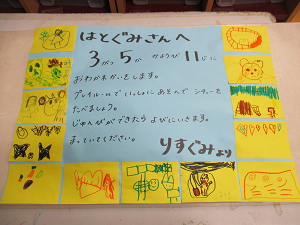 はとぐみさんへ
3がつ5か かようび11じに
おわかれかいをします。
プレイルームでいっしょにあそんでシチューを
たべましょう。
じゅんびができたらよびにいきます。
まっていてください。
りすぐみより